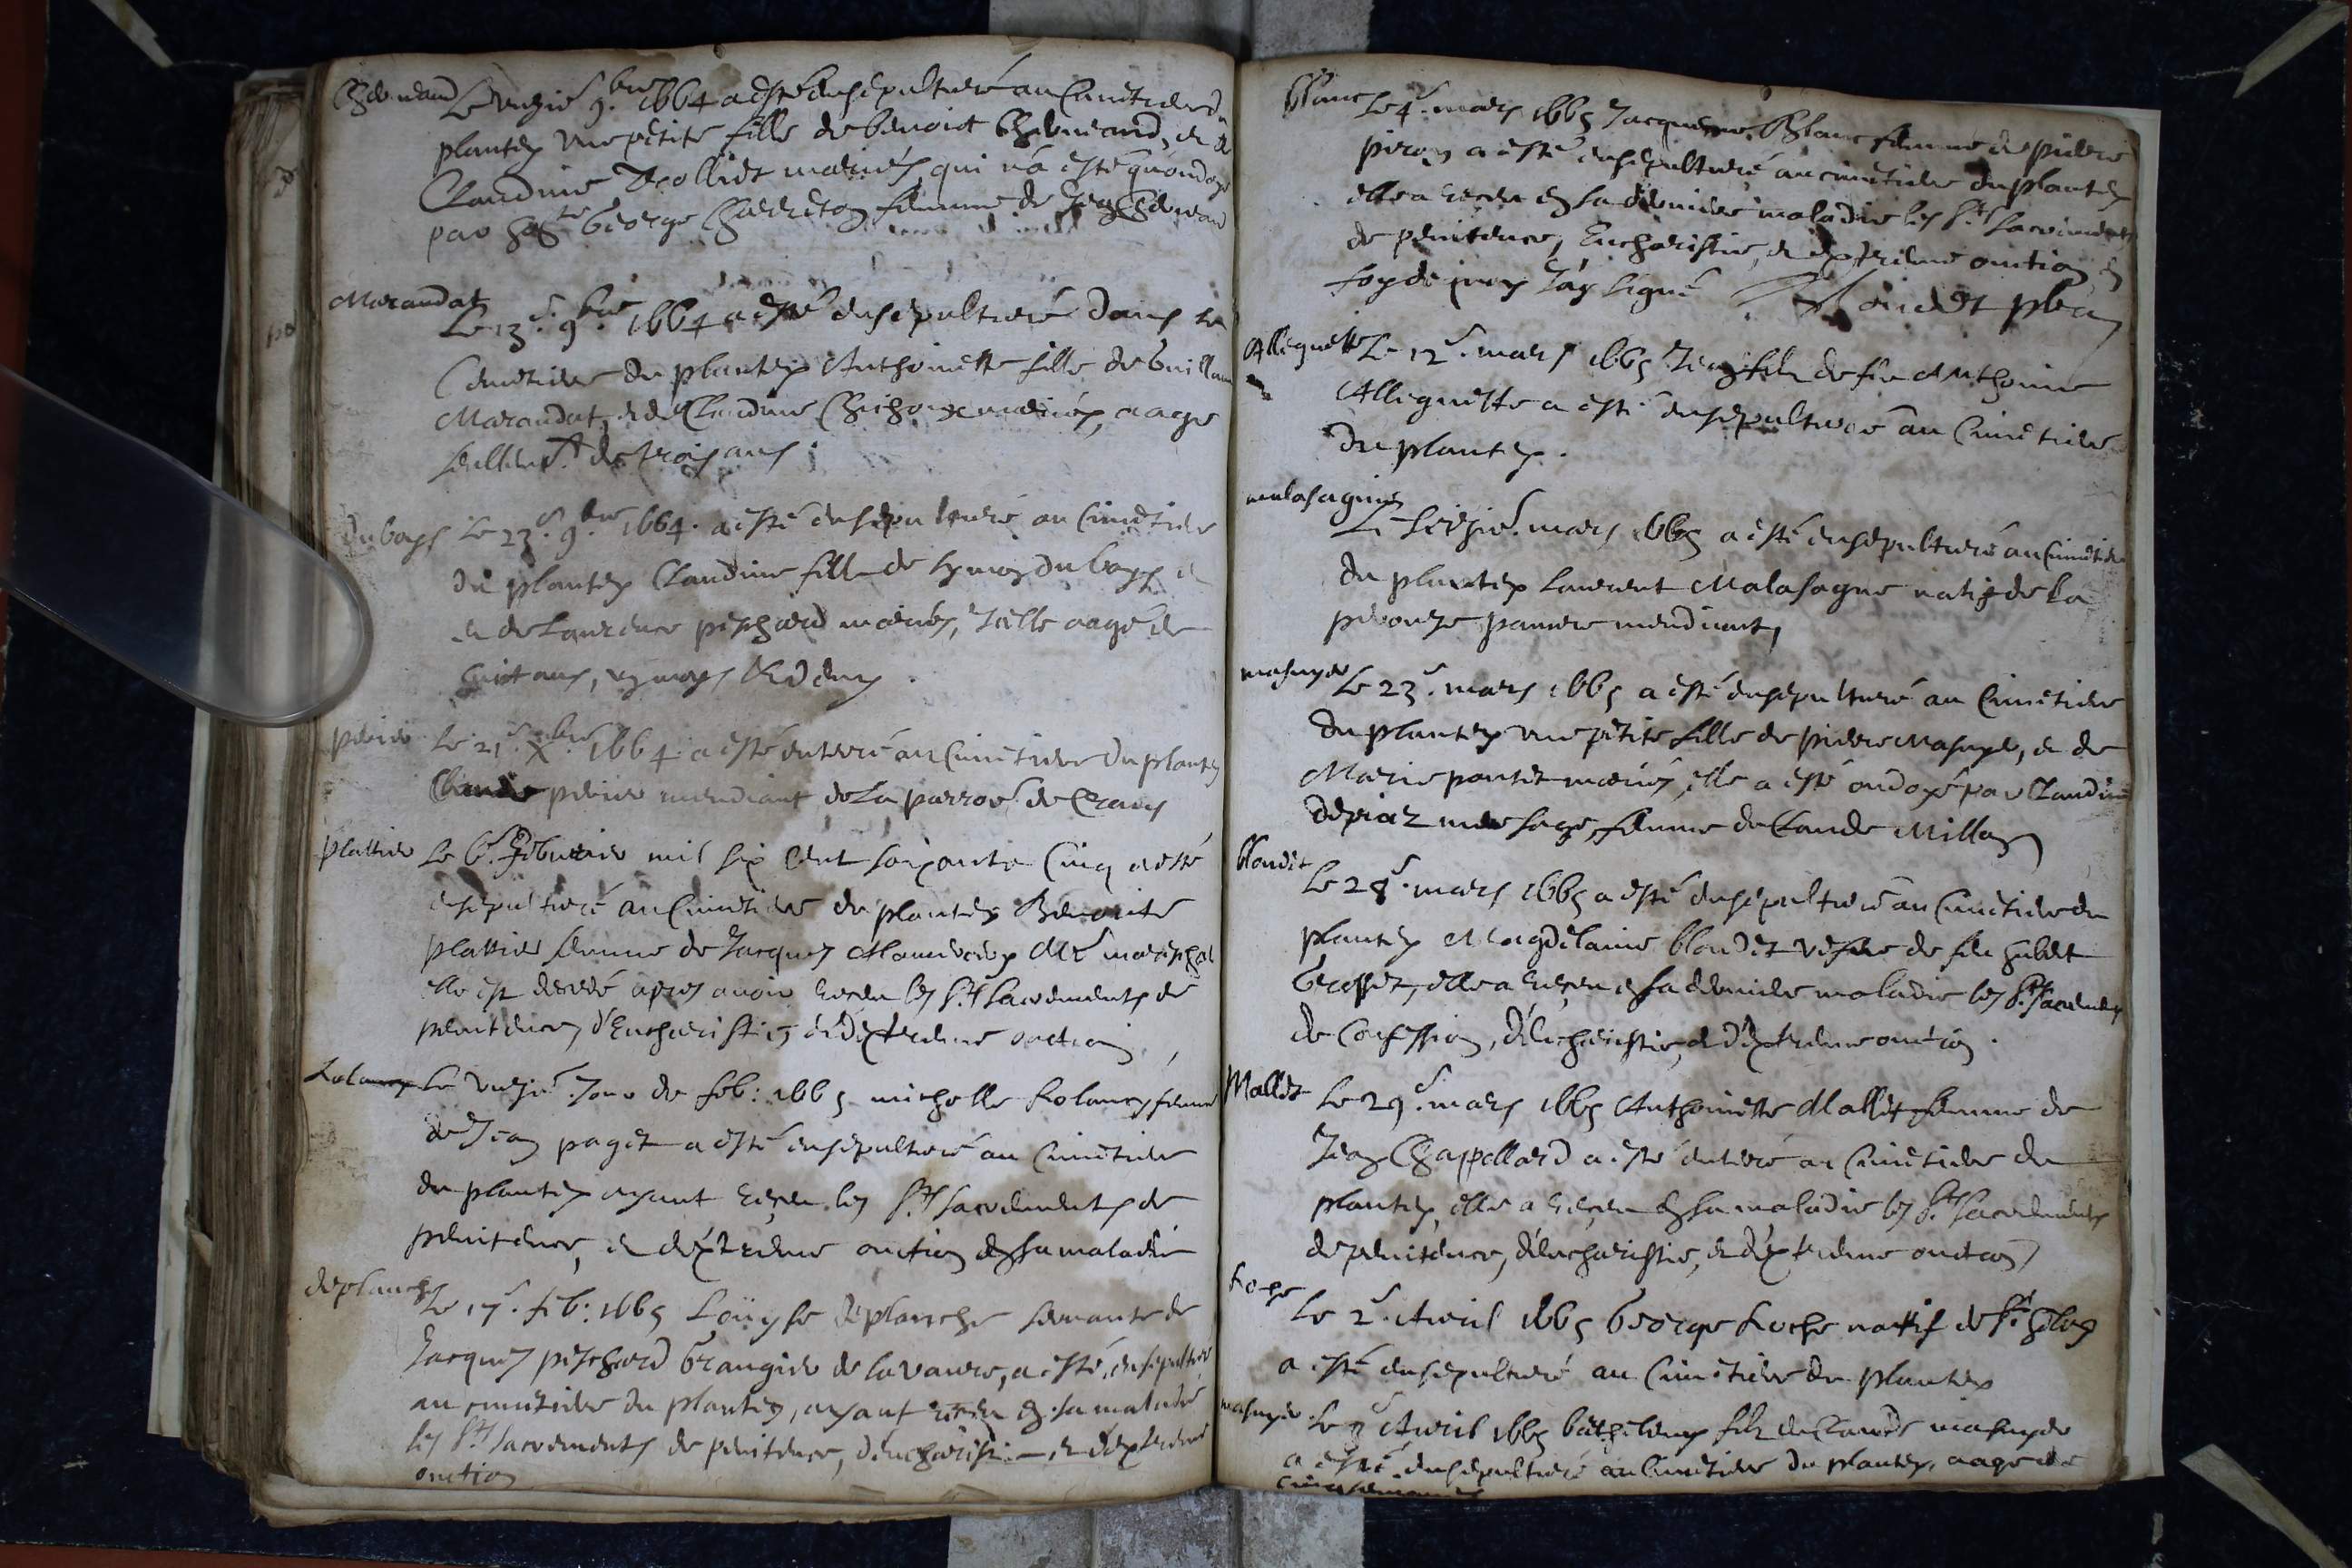 Le unzie 9.bre 1664 a esté ensepulturé au Cimetiere du
plantey une petite fille de benoict et de
Claudine mariés, qui n'a esté qu'ondoye
par George femme de Jean
Marandat
Le 13.e 9.bre 1664 a esté ensepulturé dans le
Cimetiere du plantey Anthoinette fille de Guillaume
Marandat, et de Claudine mariés, aage
seullem.t de trois ans
du boys Le 23.e 9.bre 1664. a esté ensepulturé au Cimetiere
du plantey Claudine fille de Symon du boys et
et de Laurence peschard mariés, Icelle aagé de
huit ans, un moys et demy.
perier Le 21.e X.bre 1664 a esté enterré au Cimetiere du plantey
Claude perier mendiant de la parroê de Crans
plattier Le 6.e Febvrier mil six cent soixante Cinq a esté
ensepulturé au Cimetiere du plantey Benoite
plattier femme de Jacques M.e mareschal
elle est decedé apres avoir receu les S.ts Sacrements de
penitence, d'Eucharistie, et d'extreme onction
Le unzie.e Jour de feb: 1665 michelle femme
de Jean paget a esté ensepulturé au Cimetiere
du plantey ayant receu les S.ts Sacrements de
penitence, et d'extreme onction en sa maladie
deplanche Le 17.e feb: 1665 Loüyse deplanche servante de
Jacques peschard Grangier de la vavre, a esté ensepulturé
au cimetiere du plantey, ayant receu en sa maladie
les S.ts Sacrements de penitence, d'eucharistie et d'extreme
onction
blanc Le 4.e mars 1665 Jacqueme Blanc femme de pierre
piron a esté ensepulturé au cimetiere du plantey
elle a receu en sa derniere maladie les S.ts Sacrements
de penitence, Eucharistie, et extreme onction, en
foy de quoy j'ay signé
Alleguette Le 12.e mars 1665 Jean fils de feu Anthoine
Alleguette a esté ensepulturé au Cimetiere
du plantey.
malasagne
Le seizie.e mars 1665 a esté ensepulturé au Cimetiere
du plantey Laurent Malasagne natif de la
perouze pauvre mendiant,
masuyer Le 23.e mars 1665 a esté ensepulturé au Cimetiere
du plantey une petite fille de pierre Masuyer, et de
Marie pontet mariés, elle a esté ondoyé par Claudine
mere sage, femme de Claude Millon
blondet
Le 28.e mars 1665 a esté ensepulturé au Cimetiere du
plantey Magdelaine blondet vefve de feu
elle a receu en sa derniere maladie les S.ts Sacrements
de Confession, d'Eucharistie, et d'extreme onction.
Mallet Le 29.e mars 1665 Anthoinette Mallet femme de
Jean Chappellard a esté enterré au Cimetiere du
plantey, elle a receu en sa maladie les S.ts Sacrements
de penitence, d'eucharistie, et d'extreme onction
Roche
Le 2.e Avril 1665 George Roche natif de S.t
a esté ensepulturé au Cimetiere du plantey
masuyer Le Avril 1665 fils de Claude masuyer
a esté ensepulturé au Cimetiere du plantey, aagé de